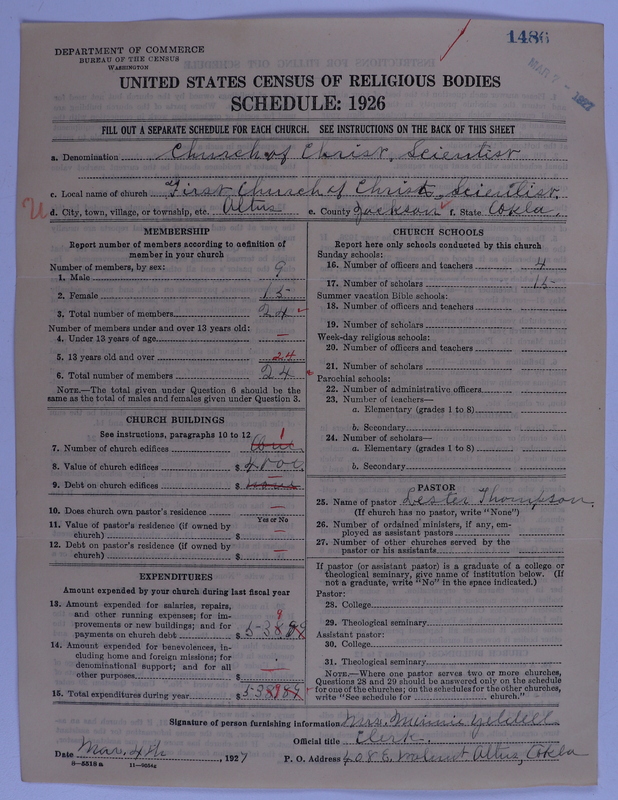 1486
MAR 7 - 1927
DEPARTMENT OF COMMERCE
BUREAU OF THE CENSUS
WASHINGTON
UNITED STATES CENSUS OF RELIGIOUS BODIES
SCHEDULE: 1926
FILL OUT A SEPARATE SCHEDULE FOR EACH CHURCH. SEE INSTRUCTIONS ON THE BACK OF THIS SHEET
a. Denomination Church of Christ, Scientist
c. Local name of church First Church of Christ, Scientist,
U d. City, town, village, or township, etc. Altus e. County Jackson f. State Okla.
MEMBERSHIP
Report number of members according to definition of
member in your church
Number of members, by sex:
1. Male 9
2. Female 15
3. Total number of members 24
Number of members under and over 13 years old:
4. Under 13 years of age —
5. 13 years old and over 24
6. Total number of members 24
NOTE.—The total given under Question 6 should be
same as the total of males and females given under Question 3.
CHURCH BUILDINGS
See instructions, paragraphs 10 to 12
7. Number of church edifices One 1
8. Value of church edifices $ 4000
9. Debt on church edifices $ None
10. Does church own pastor's residence —
Yes or No
11. Value of pastor's residence (if owned by
church) $ —
12. Debt on pastor's residence (if owned by
church) $ —
EXPENDITURES
Amount expended by your church during last fiscal year
13. Amount expended for salaries, repairs,
and other running expenses; for im-
provements or new buildings; and for
payments on church debt $
14. Amount expended for benevolences, in-
cluding home and foreign missions; for
denominational support; and for all
other purposes $ —
15. Total expenditures during year $
CHURCH SCHOOLS
Report here only schools conducted by this church
Sunday schools:
16. Number of officers and teachers 4
17. Number of scholars 15
Summer vacation Bible schools:
18. Number of officers and teachers
19. Number of scholars
Week-day religious schools:
20. Number of officers and teachers
21. Number of scholars
Parochial schools:
22. Number of administrative officers
23. Number of teachers—
a. Elementary (grades 1 to 8)
b. Secondary
24. Number of scholars—
a. Elementary (grades 1 to 8)
b. Secondary
PASTOR
25. Name of pastor Lester Thompson
(If church has no pastor, write "None")
26. Number of ordained ministers, if any, em-
ployed as assistant pastors
27. Number of other churches served by the
pastor or his assistants
If pastor (or assistant pastor) is a graduate of a college or
theological seminary, give name of institution below. (If
not a graduate, write "No" in the space indicated.)
Pastor:
28. College
29. Theological seminary
Assistant pastor:
30. College
31. Theological seminary
NOTE.—Where one pastor serves two or more churches,
Questions 28 and 29 should be answered only on the schedule
for one of the churches; on the schedules for the other churches,
write "See schedule for church."
Signature of person furnishing information Mrs. Minnie Yeldell
Official title Clerk.
Date Mar. 4th, 1927 P. O. Address 408 E. Walnut Altus, Okla
8—5518a 11—9554